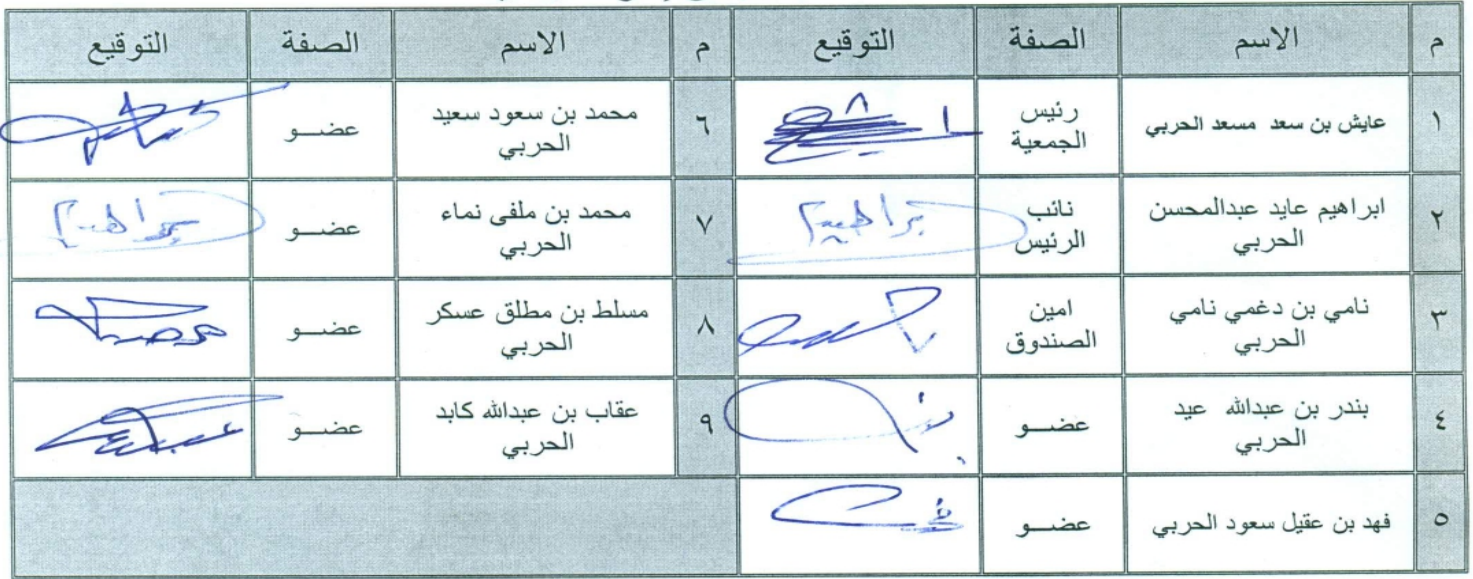 م الاسم الصفة التوقيع م الاسم الصفة التوقيع
١ عايش بن سعد مسعد الحربي رئيس الجمعية ٦ محمد بن سعود سعيد الحربي عضــو
٢ ابراهيم عايد عبدالمحسن الحربي نائب الرئيس ابراهيم ٧ محمد بن ملفى نماء الحربي عضــو
٣ نامي بن دغمي نامي الحربي امين الصندوق ٨ مسلط بن مطلق عسكر الحربي عضــو
٤ بندر بن عبدالله عيد الحربي عضــو ٩ عقاب بن عبدالله كابد الحربي عضــو
٥ فهد بن عقيل سعود الحربي عضــو